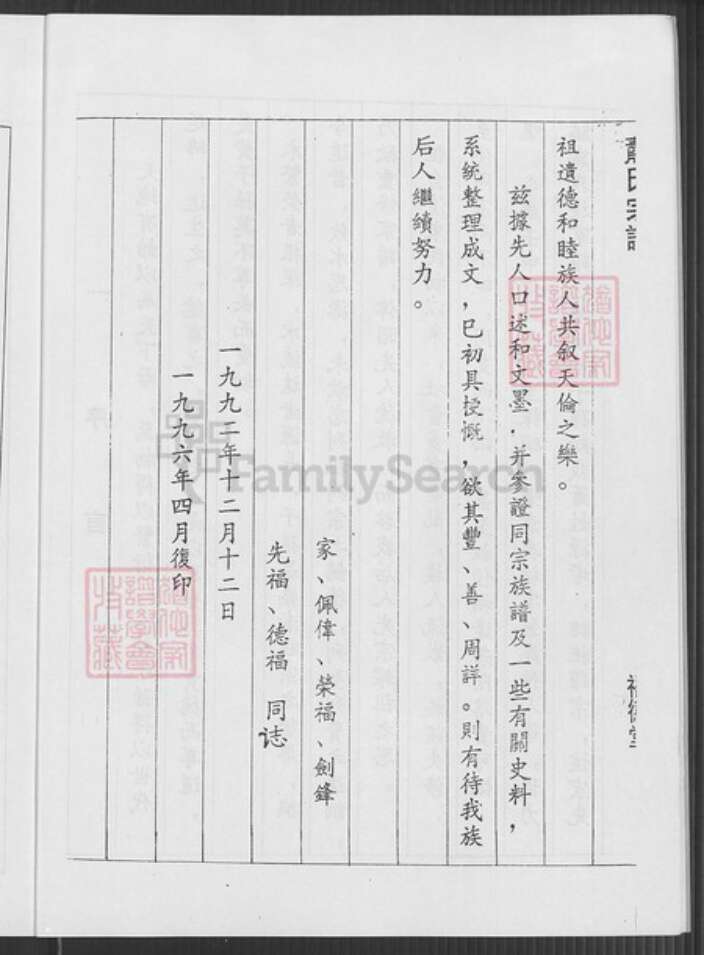 氏宗譜
祖遺德和睦族人共叙天倫之樂。
兹據先人口述和文墨．并參證同宗族譜及一些有關史料，
系統整理成文，已初具梗慨，欲其豐、善、周詳。則有待我族
后人繼續努力。
家、佩偉、榮福、劍鋒
先福、德福 同志
一九九二年十二月十二日
一九九六年四月復印
FamilySearch